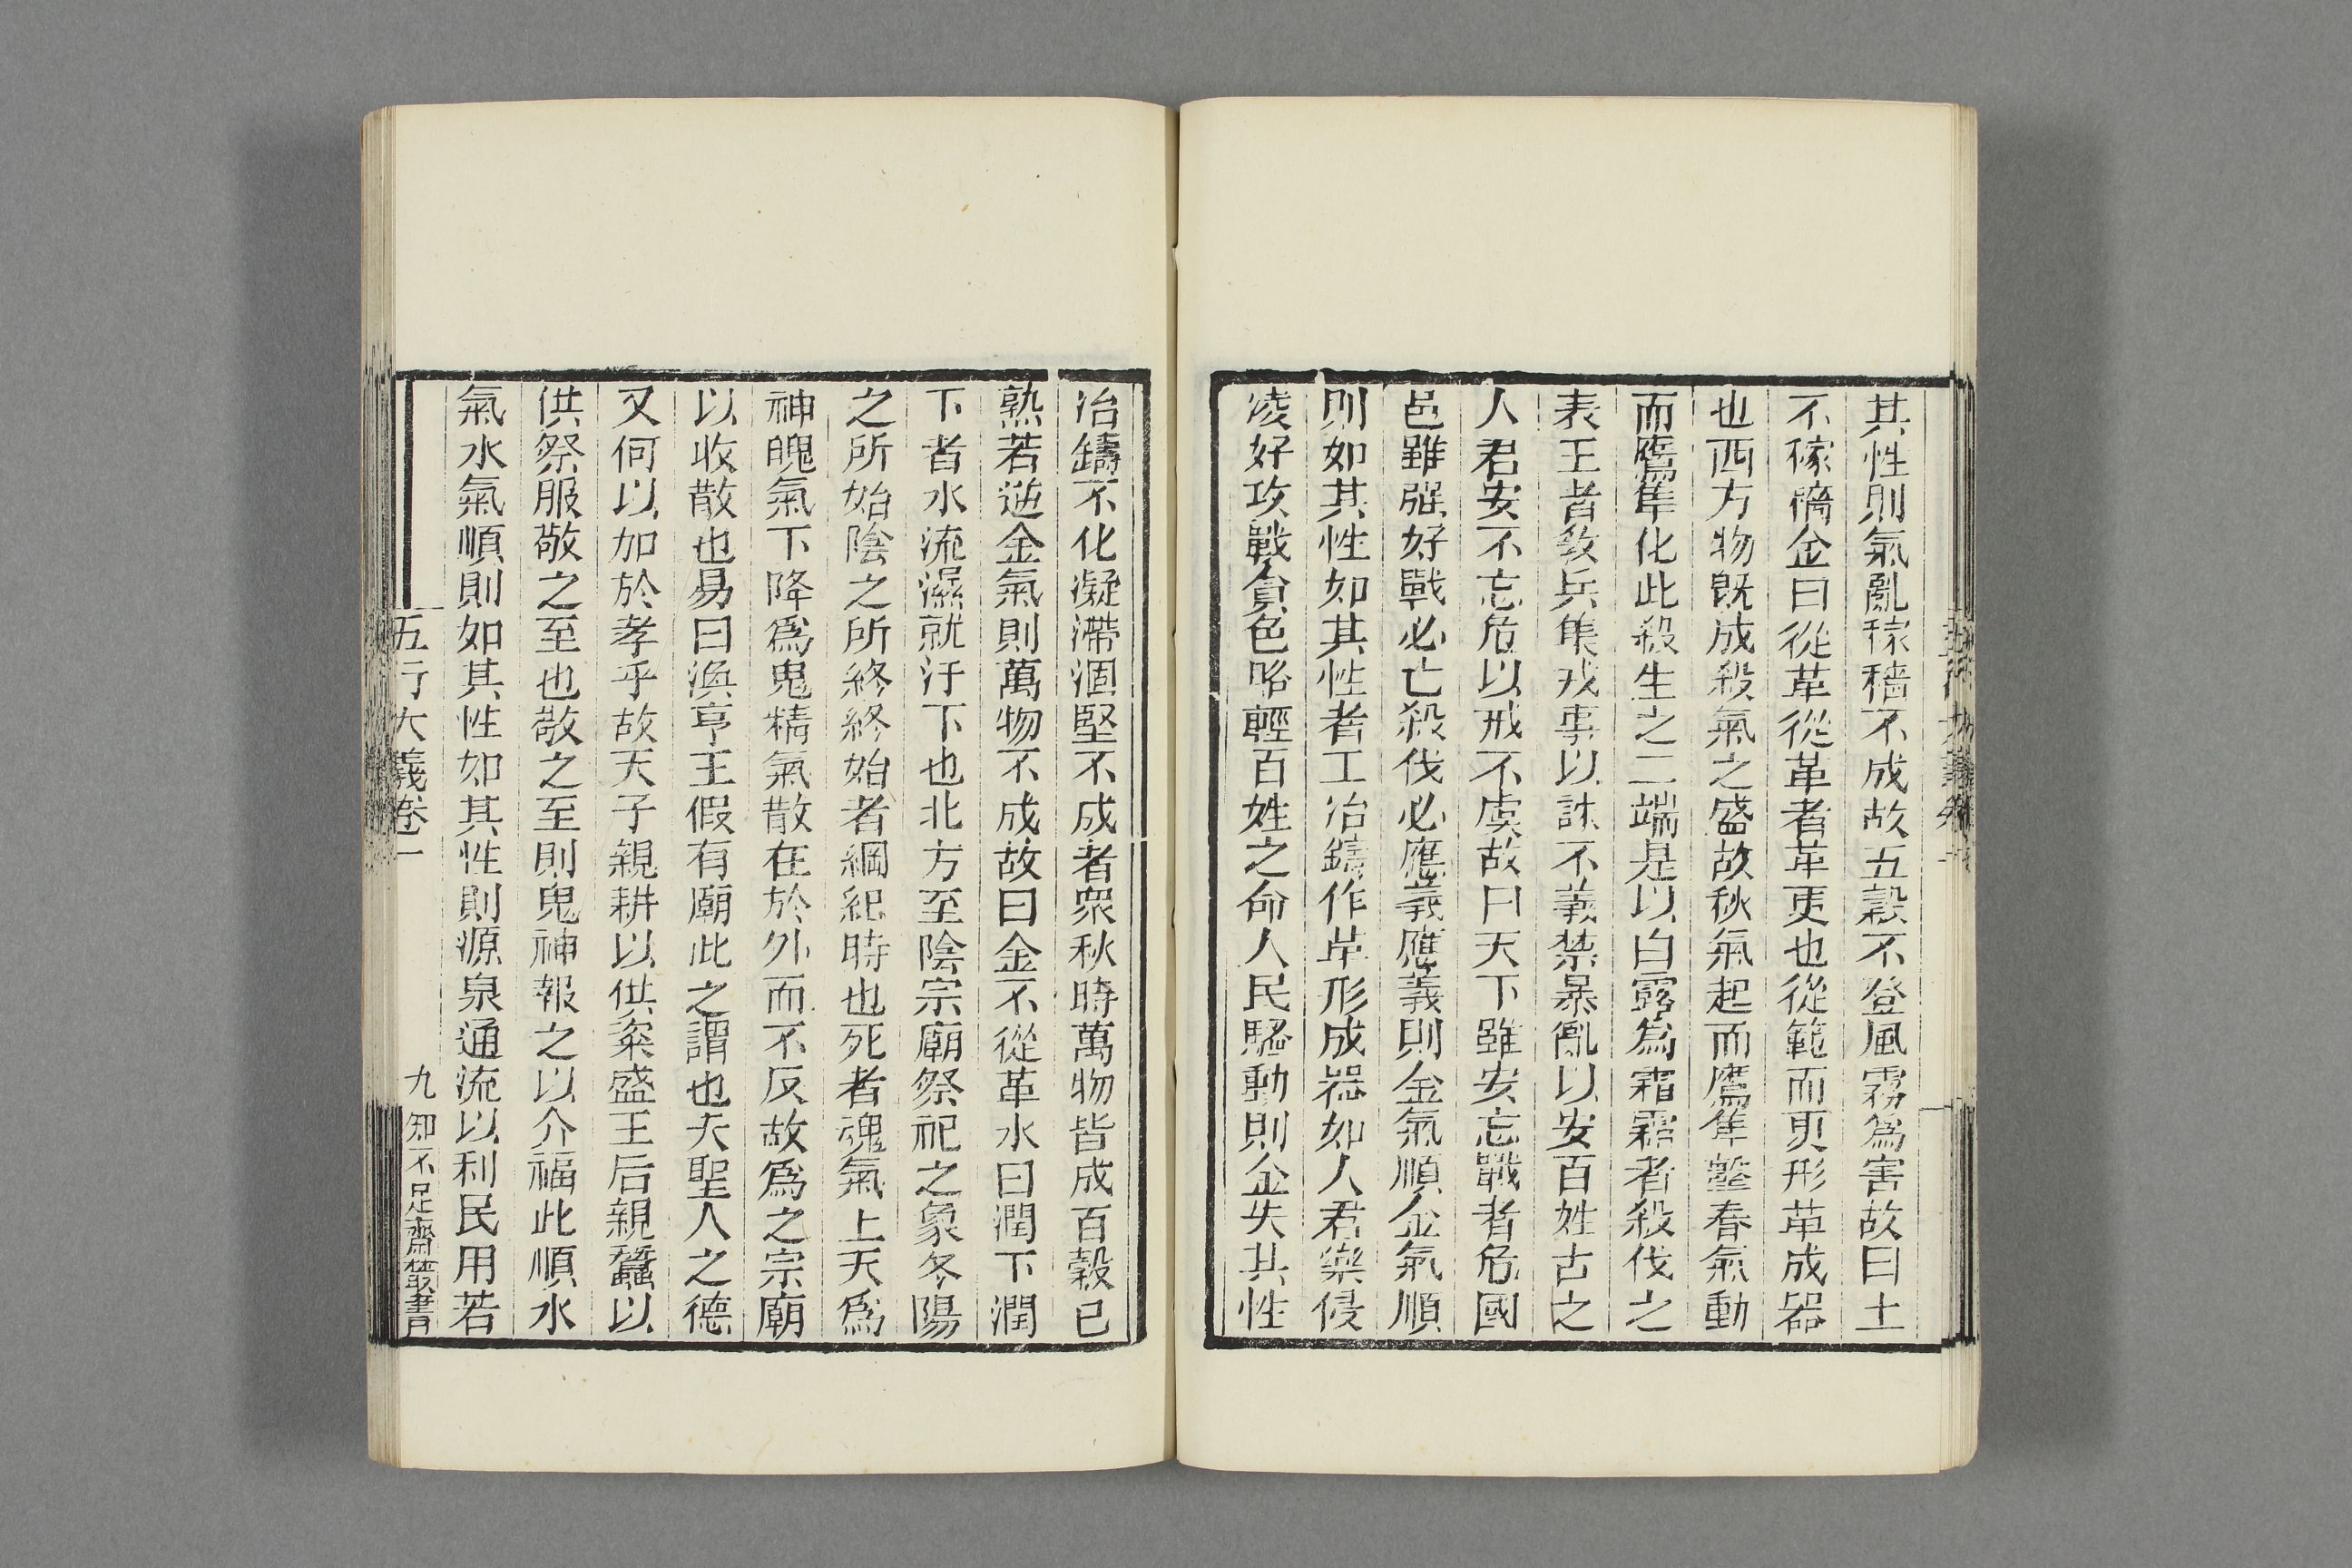 其性則氣亂稼穡不成故五穀不登風霧爲害故曰土
不稼穡金曰從革從革者革更也從範而更形革成器
也西方物既成殺氣之盛故秋氣起而鷹隼擊春氣動
而鷹隼化此殺生之二端是以白露爲霜霜者殺伐之
表王者敎兵集戎事以誅不義禁暴亂以安百姓古之
人君安不忘危以戒不虞故曰天下雖安忘戰者危國
邑雖强好戰必亡殺伐必應義應義則金氣順金氣順
則如其性如其性者工冶鑄作革形成器如人君樂侵
凌好攻戰貪色賂輕百姓之命人民騷動則金失其性
冶鑄不化凝滯涸堅不成者衆秋時萬物皆成百穀已
熟若逆金氣則萬物不成故曰金不從革水曰潤下潤
下者水流濕就汙下也北方至陰宗廟祭祀之象冬陽
之所始陰之所終終始者綱紀時也死者魂氣上天爲
神魄氣下降爲鬼精氣散在於外而不反故爲之宗廟
以收散也易曰渙亨王假有廟此之謂也夫聖人之德
又何以加於孝乎故天子親耕以供粢盛王后親蠶以
供祭服敬之至也敬之至則鬼神報之以介福此順水
氣水氣順則如其性如其性則源泉通流以利民用若
五行大義卷一
九
知不足齋叢書